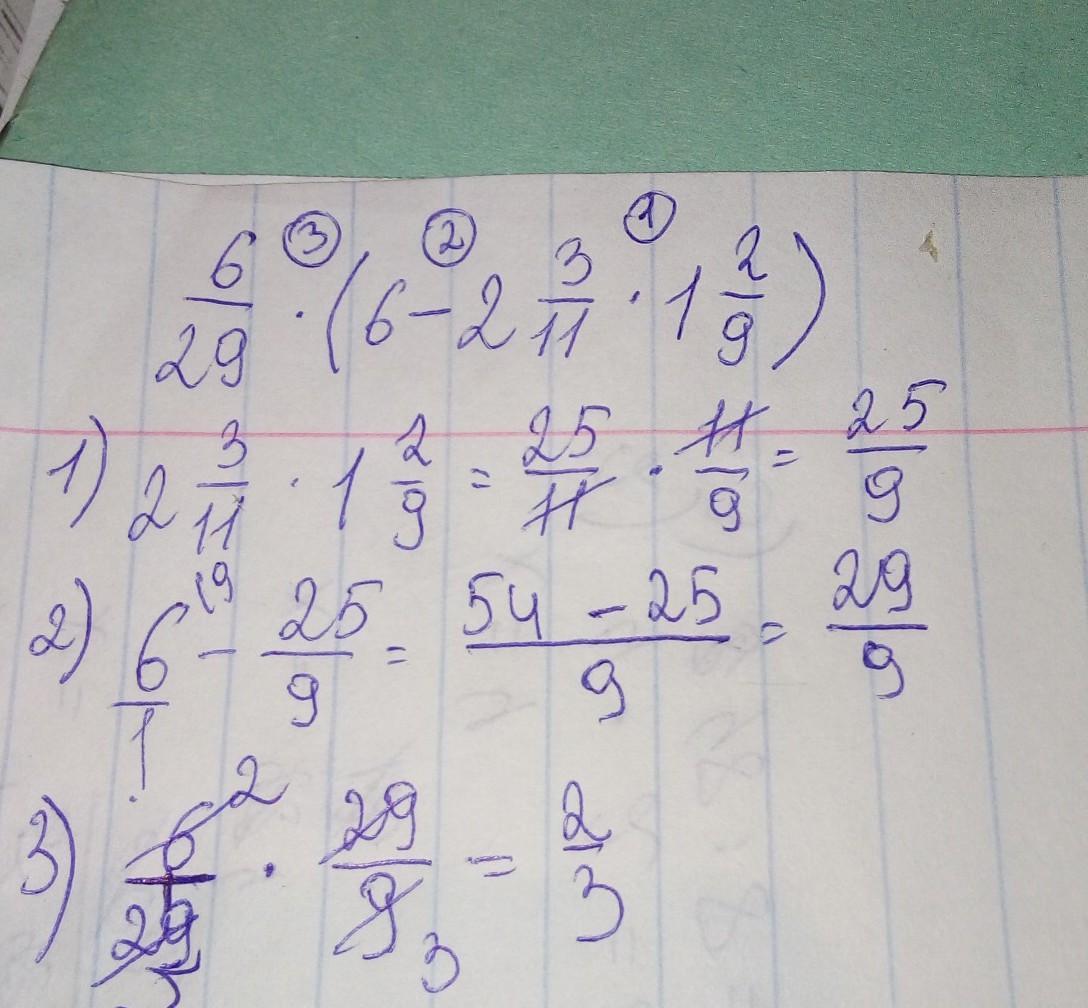 ③ ② ①
6/29 · (6 - 2 3/11 · 1 2/9)
1) 2 3/11 · 1 2/9 = 25/11 · 11/9 = 25/9
2) 6/1 (9 - 25/9 = 54 - 25/9 = 29/9
3) 6 2/29 · 29/9 3 = 2/3